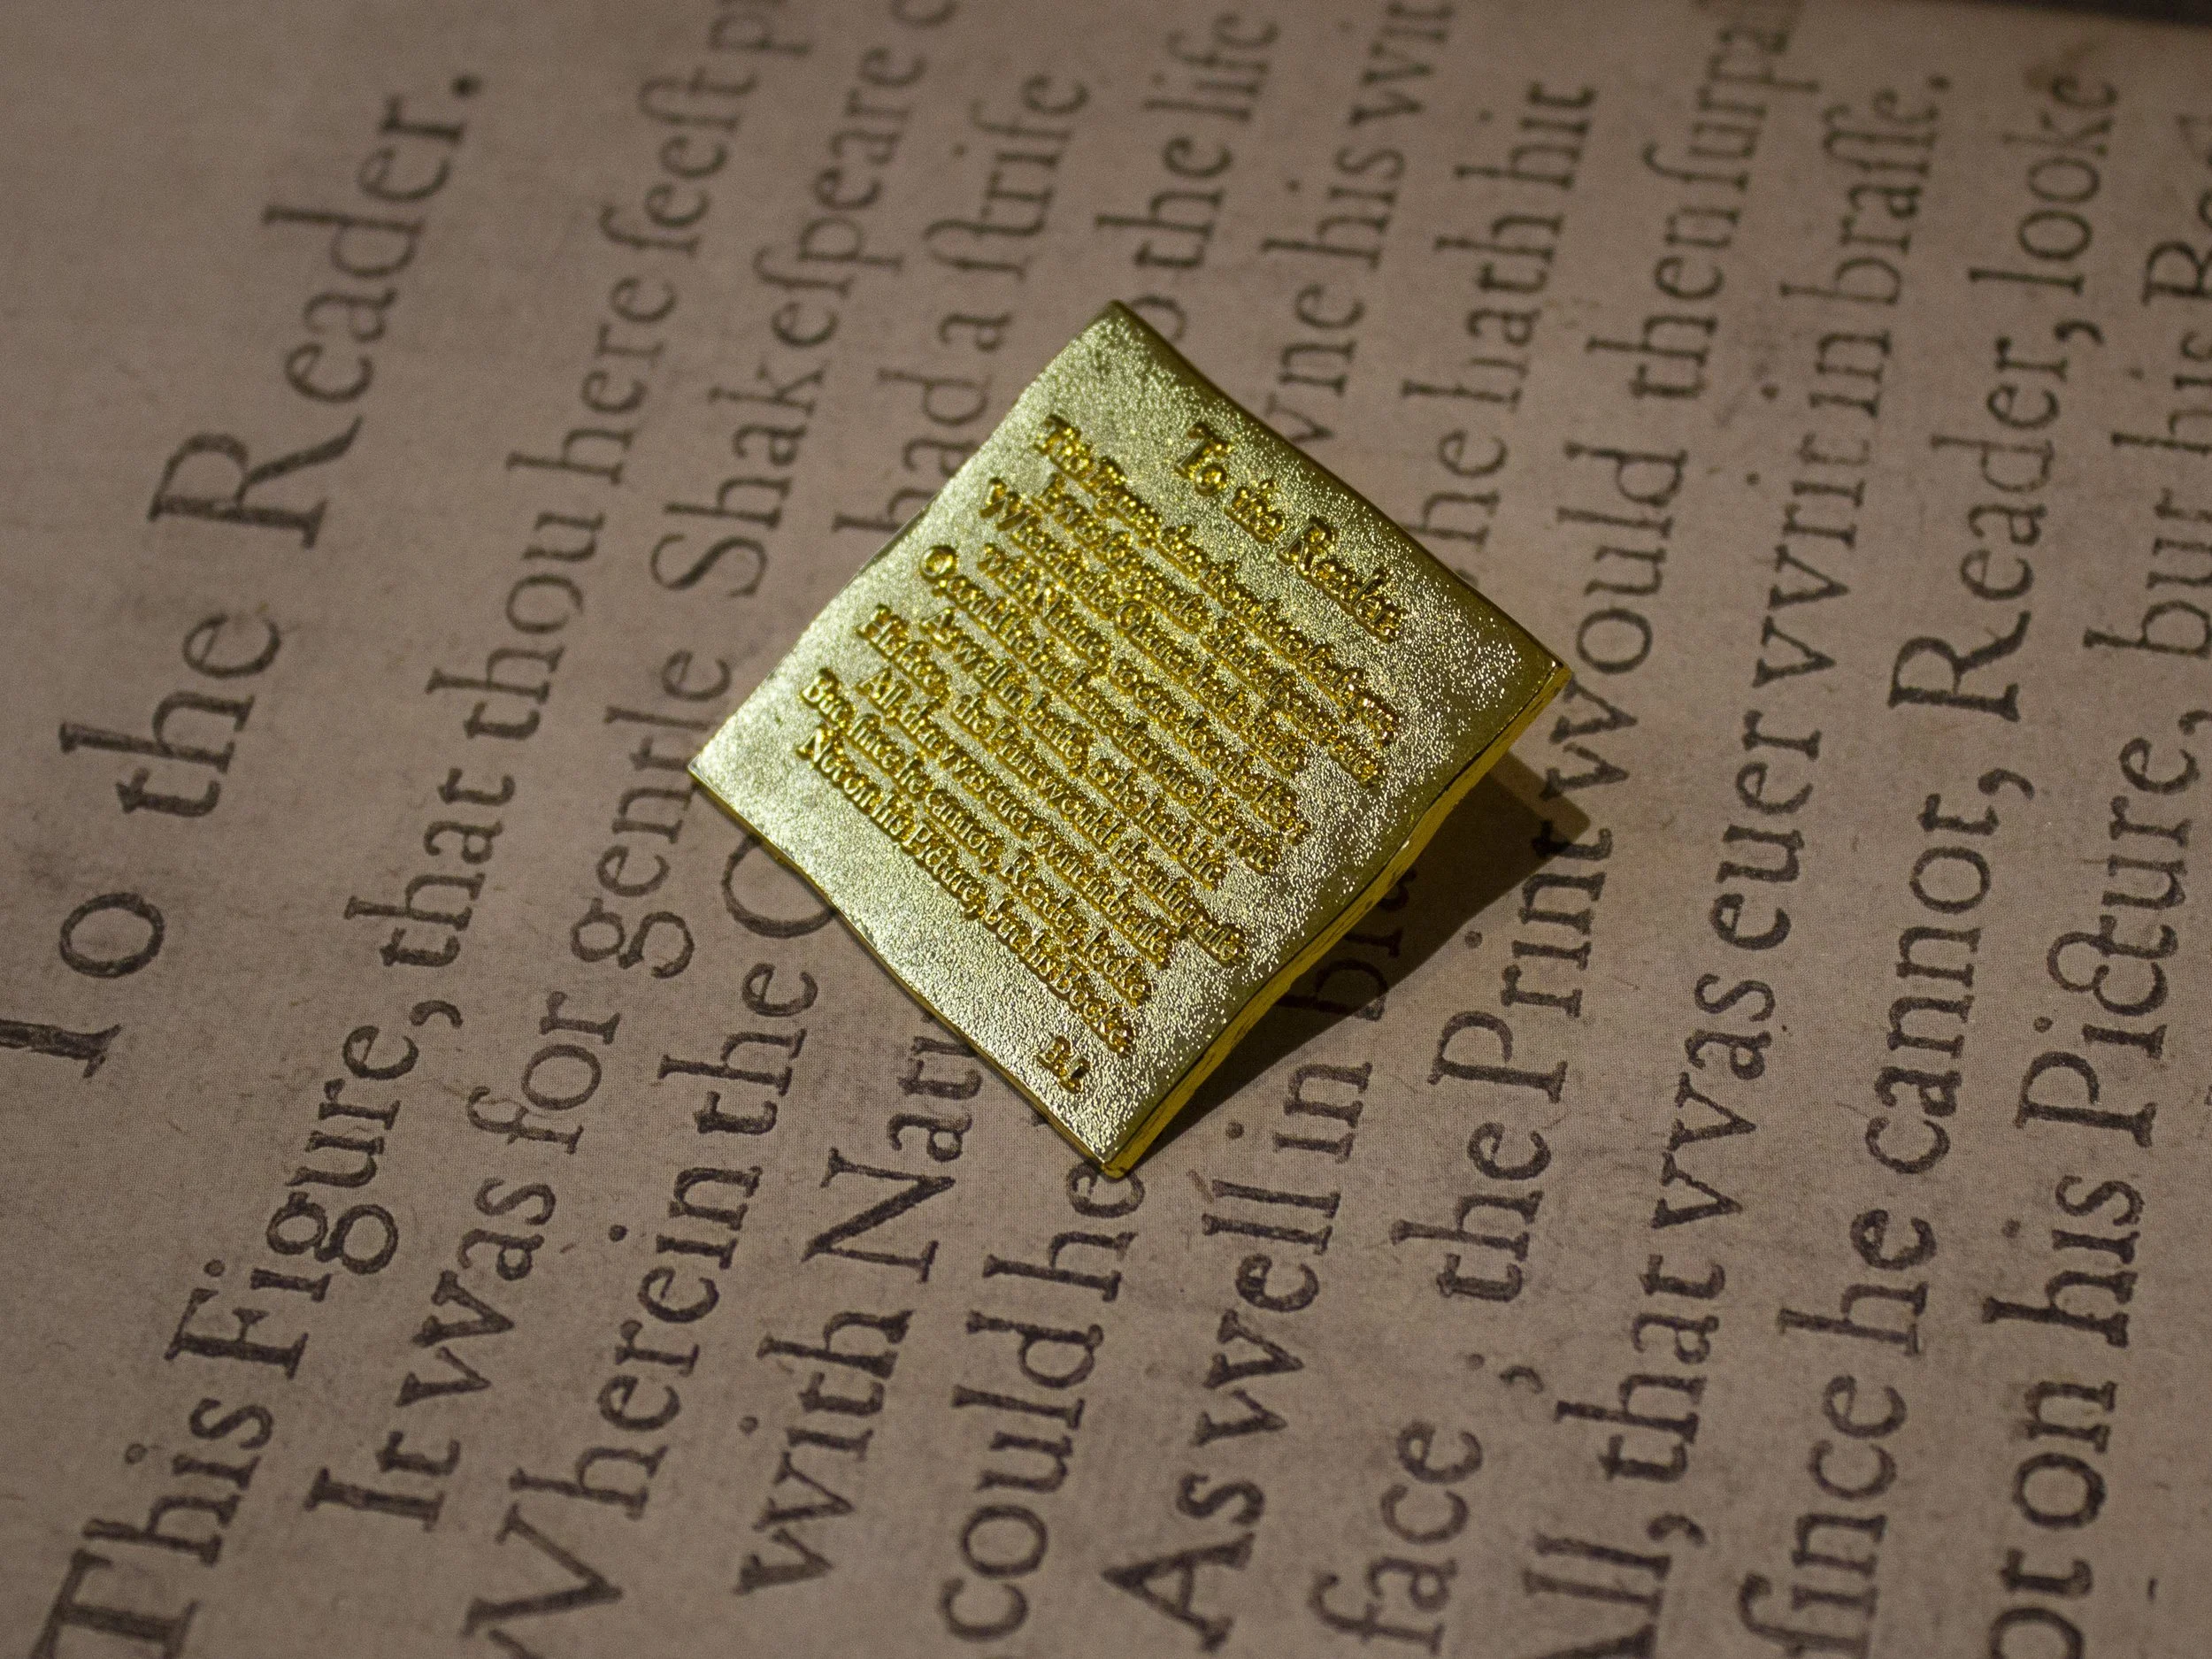 To the Reader.
This Figure, that thou here ſeeſt
It was for gentle Shakeſpeare
Wherein the had a ſtrife
with the life
could he his
As well in he hath hit
face ; the Print vvould then
All, that vvas euer vvrit in braſſe.
ſince he cannot, Reader, looke
on his Picture, but his
To the Reader
This Figure, that thou here
It was for gentle Shakeſpeare
Wherein the Grauer had a ſtrife
With Nature, to out-doo the life
O, could he but haue dravvne his vvit
As well in braſſe, as he hath hit
His face, the Print would then ſurpaſſe
All, that vvas euer vvrit in braſſe
But, ſince he cannot, Reader, looke
Not on his Picture, but his Booke.
B.I.